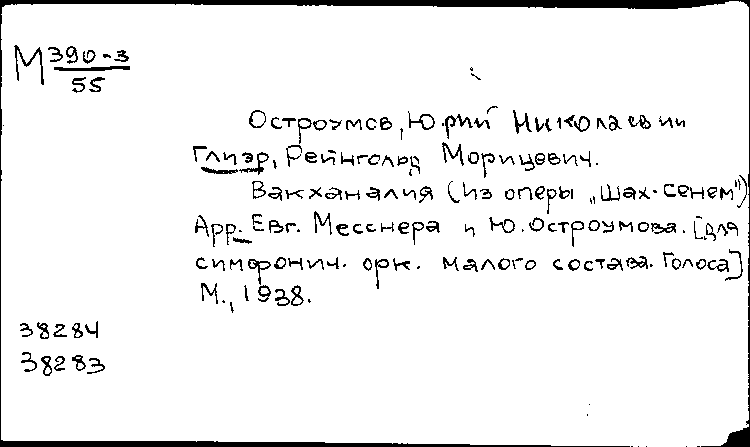 М 390-3
55
Остроумов, Юрий Николаевич
Глиэр, Рейнгольд Морицевич.
Вакханалия (из оперы „Шах-сенем")
Арр. Евг. Месснера и Ю. Остроумова. [Для
симфонич. орк. малого состава. Голоса]
М., 1938.
38284
38283